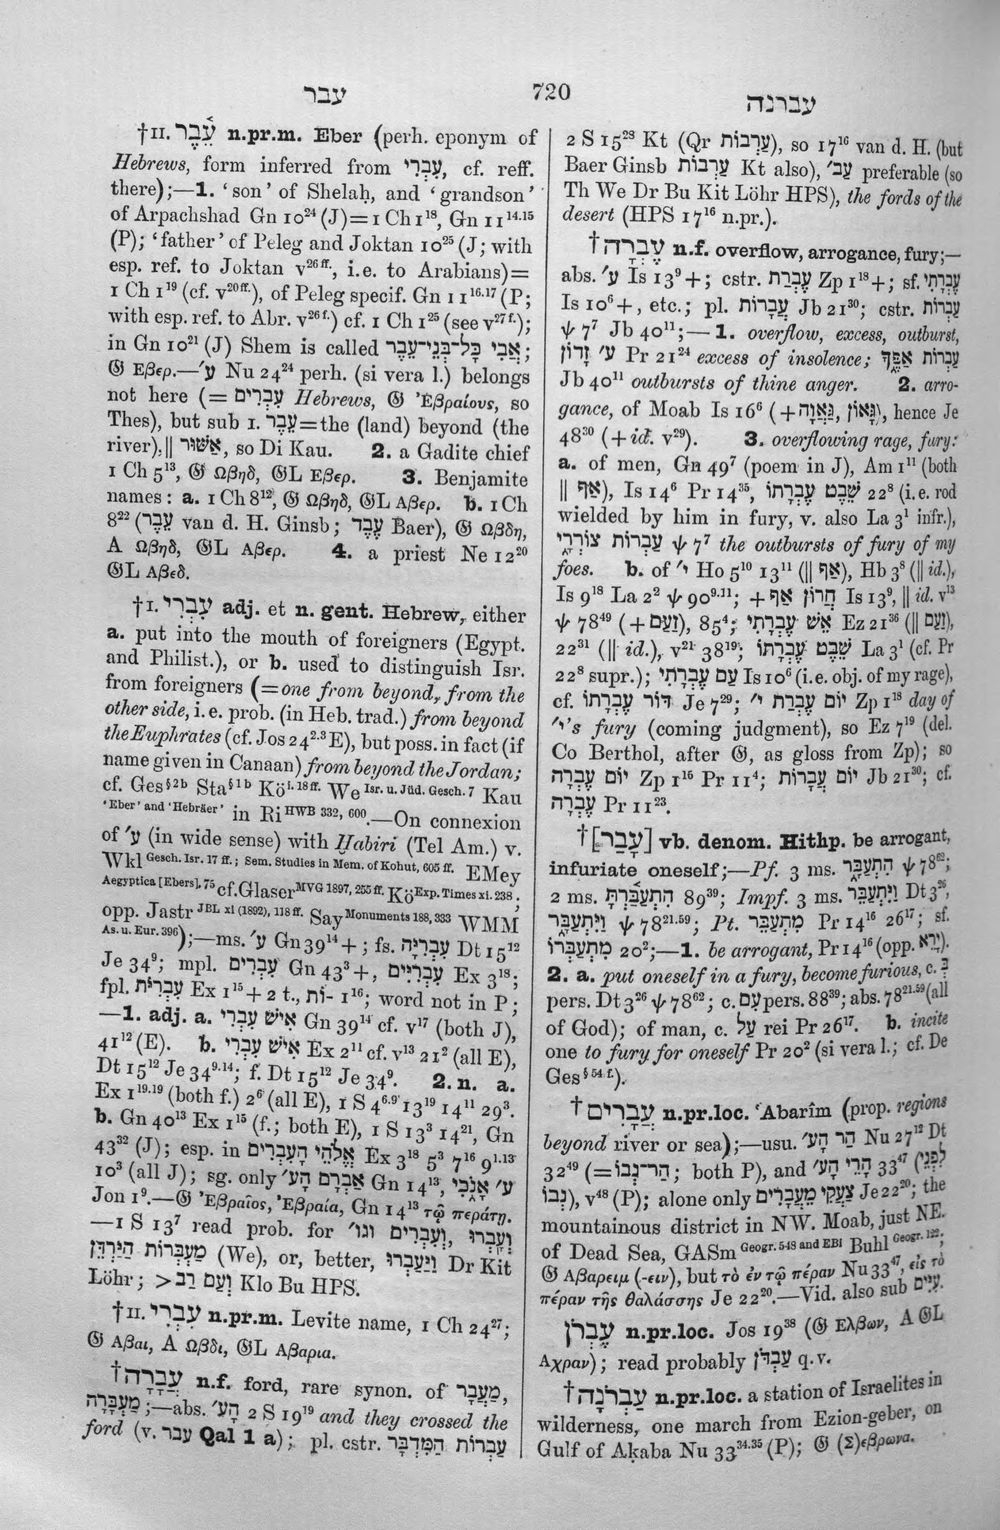 עבר
720
עברנה
†II. עֵ֫בֶר n.pr.m. Eber (perh. eponym of
Hebrews, form inferred from עִבְרִי, cf. reff.
there);—1. ‘son’ of Shelaḥ, and ‘grandson’
of Arpachshad Gn 10²⁴ (J)=1 Ch 1¹⁸, Gn 11¹⁴·¹⁵
(P); ‘father’ of Peleg and Joktan 10²⁵ (J; with
esp. ref. to Joktan v²⁶ ᶠᶠ·, i.e. to Arabians)=
1 Ch 1¹⁹ (cf. v²⁰ᶠᶠ·), of Peleg specif. Gn 11¹⁶·¹⁷ (P;
with esp. ref. to Abr. v²⁶ ᶠ·) cf. 1 Ch 1²⁵ (see v²⁷ ᶠ·);
in Gn 10²¹ (J) Shem is called אֲבִי כָּל־בְּנֵי־עֵבֶר;
𝔊 Εβερ.—ע׳ Nu 24²⁴ perh. (si vera l.) belongs
not here (= עִבְרִים Hebrews, 𝔊 Ἑβραίους, so
Thes), but sub I. עֵבֶר=the (land) beyond (the
river), ‖ אַשּׁוּר, so Di Kau. 2. a Gadite chief
1 Ch 5¹³, 𝔊 Ωβηδ, 𝔊L Εβερ. 3. Benjamite
names: a. 1 Ch 8¹², 𝔊 Ωβηδ, 𝔊L Αβερ. b. 1 Ch
8²² (עֵבֶר van d. H. Ginsb; עֶבֶד Baer), 𝔊 Ωβδη,
A Ωβηδ, 𝔊L Αβερ. 4. a priest Ne 12²⁰
𝔊L Αβεδ.
†I. עִבְרִי adj. et n. gent. Hebrew, either
a. put into the mouth of foreigners (Egypt.
and Philist.), or b. used to distinguish Isr.
from foreigners (=one from beyond, from the
other side, i.e. prob. (in Heb. trad.) from beyond
the Euphrates (cf. Jos 24²·³ E), but poss. in fact (if
name given in Canaan) from beyond the Jordan;
cf. Ges§ 2b Sta§ 1 b Köi. 18 ff. We Isr. u. Jüd. Gesch. 7 Kau
‘Eber’ and ‘Hebräer’ in Ri HWB 332, 600.—On connexion
of ע׳ (in wide sense) with Ḫabiri (Tel Am.) v.
Wkl Gesch. Isr. 17 ff.; Sem. Studies in Mem. of Kohut, 605 ff. EMey
Aegyptica [Ebers], 75 cf. Glaser MVG 1897, 255 ff. Kö Exp. Times xi. 238;
opp. Jastr JBL xi (1892), 118 ff. Say Monuments 188, 333 WMM
As. u. Eur. 396);—ms. ע׳ Gn 39¹⁴ +; fs. עִבְרִיָּה Dt 15¹²
Je 34⁹; mpl. עִבְרִים Gn 43³+, עִבְרִיִּים Ex 3¹⁸;
fpl. עִבְרִיֹּת Ex 1¹⁵ + 2 t., ־יוֹת 1¹⁶; word not in P;
—1. adj. a. אִישׁ עִבְרִי Gn 39¹⁴ cf. v¹⁷ (both J),
41¹² (E). b. אִישׁ עִבְרִי Ex 2¹¹ cf. v¹³ 21² (all E),
Dt 15¹² Je 34⁹·¹⁴; f. Dt 15¹² Je 34⁹. 2. n. a.
Ex 1¹⁹·¹⁹ (both f.) 2⁶ (all E), 1 S 4⁶·⁹ 13¹⁹ 14¹¹ 29³.
b. Gn 40¹⁵ Ex 1¹⁵ (f.; both E), 1 S 13³ 14²¹, Gn
43³² (J); esp. in אֱלֹהֵי הָעִבְרִים Ex 3¹⁸ 5³ 7¹⁶ 9¹·¹³
10³ (all J); sg. only אַבְרָם הָע׳ Gn 14¹³, ע׳ אָנֹכִי
Jon 1⁹.—𝔊 Ἑβραῖος, Ἑβραία, Gn 14¹³ τῷ περάτῃ.
—1 S 13⁷ read prob. for וְעִבְרִים עָבְרוּ וגו׳, וְעָבְרוּ
מַעְבְּרוֹת הַיַּרְדֵּן (We), or, better, וַיַּעַבְרוּ Dr Kit
Löhr; > וְעַם רַב Klo Bu HPS.
†II. עִבְרִי n.pr.m. Levite name, 1 Ch 24²⁷;
𝔊 Αβαι, A Ωβδι, 𝔊L Αβαρια.
†עֲבָרָה n.f. ford, rare synon. of מַעֲבָר,
מַעְבָּרָה;—abs. הָע׳ 2 S 19¹⁹ and they crossed the
ford (v. עבר Qal 1 a); pl. cstr. עַבְרוֹת הַמִּדְבָּר
2 S 15²⁸ Kt (Qr עַרְבוֹת), so 17¹⁶ van d. H. (but
Baer Ginsb עַרְבוֹת Kt also), עב׳ preferable (so
Th We Dr Bu Kit Löhr HPS), the fords of the
desert (HPS 17¹⁶ n.pr.).
†עֶבְרָה n.f. overflow, arrogance, fury;—
abs. ע׳ Is 13⁹ +; cstr. עֶבְרַת Zp 1¹⁸ +; sf. עֶבְרָתִי
Is 10⁶ +, etc.; pl. עֲבָרוֹת Jb 21³⁰; cstr. עַבְרוֹת
ψ 7⁷ Jb 40¹¹;—1. overflow, excess, outburst,
ע׳ זָדוֹן Pr 21²⁴ excess of insolence; עֶבְרוֹת אַפֶּךָ
Jb 40¹¹ outbursts of thine anger. 2. arro-
gance, of Moab Is 16⁶ (+גַּאֲוָה, גָּאוֹן), hence Je
48³⁰ (+id. v²⁹). 3. overflowing rage, fury:
a. of men, Gn 49⁷ (poem in J), Am 1¹¹ (both
‖ אַף), Is 14⁶ Pr 14³⁵, שֵׁבֶט עֶבְרָתוֹ 22⁸ (i.e. rod
wielded by him in fury, v. also La 3¹ infr.),
עַבְרוֹת צוֹרְרָי ψ 7⁷ the outbursts of fury of my
foes. b. of י׳ Ho 5¹⁰ 13¹¹ (‖ אַף), Hb 3⁸ (‖ id.),
Is 9¹⁸ La 2² ψ 90⁹·¹¹; + חֲרוֹן אַף Is 13⁹, ‖ id. v¹³
ψ 78⁴⁹ (+ זַעַם), 85⁴; אֵשׁ עֶבְרָתִי Ez 21³⁶ (‖ זַעַם),
22³¹ (‖ id.), v²¹ 38¹⁹; שֵׁבֶט עֶבְרָתוֹ La 3¹ (cf. Pr
22⁸ supr.); עַם עֶבְרָתִי Is 10⁶ (i.e. obj. of my rage),
cf. דּוֹר עֶבְרָתוֹ Je 7²⁹; יוֹם עֶבְרַת י׳ Zp 1¹⁸ day of
י׳'s fury (coming judgment), so Ez 7¹⁹ (del.
Co Berthol, after 𝔊, as gloss from Zp); so
יוֹם עֶבְרָה Zp 1¹⁵ Pr 11⁴; יוֹם עֲבָרוֹת Jb 21³⁰; cf.
עֶבְרָה Pr 11²³.
†[עָבַר] vb. denom. Hithp. be arrogant,
infuriate oneself;—Pf. 3 ms. הִתְעַבָּר ψ 78⁶²;
2 ms. הִתְעַבַּרְתָּ 89³⁹; Impf. 3 ms. וַיִּתְעַבֵּר Dt 3²⁶,
וַיִּתְעַבָּר ψ 78²¹·⁵⁹; Pt. מִתְעַבֵּר Pr 14¹⁶ 26¹⁷; sf.
מִתְעַבְּרוֹ 20²;—1. be arrogant, Pr 14¹⁶ (opp. יָרֵא).
2. a. put oneself in a fury, become furious, c. בְּ
pers. Dt 3²⁶ ψ 78⁶²; c. עִם pers. 88³⁹; abs. 78²¹·⁵⁹ (all
of God); of man, c. עַל rei Pr 26¹⁷. b. incite
one to fury for oneself Pr 20² (si vera l.; cf. De
Ges§ 54 f.).
†עֲבָרִים n.pr.loc. ʿAbarîm (prop. regions
beyond river or sea);—usu. הַר הָע׳ Nu 27¹² Dt
32⁴⁹ (=הַר־נְבוֹ; both P), and הָרֵי הָע׳ 33⁴⁷ (לִפְנֵי
נְבוֹ), v⁴⁸ (P); alone only צַעֲקִי מֵעֲבָרִים Je 22²⁰; the
mountainous district in NW. Moab, just NE.
of Dead Sea, GASm Geogr. 548 and EBI Buhl Geogr. 122;
𝔊 Αβαρειμ (-ειν), but τὸ ἐν τῷ πέραν Nu 33⁴⁷, εἰς τὸ
πέραν τῆς θαλάσσης Je 22²⁰.—Vid. also sub עִיִּים.
עֶבְרֹן n.pr.loc. Jos 19²⁸ (𝔊 Ελβων, A 𝔊L
Αχραν); read probably עַבְדּוֹן q.v.
†עַבְרֹנָה n.pr.loc. a station of Israelites in
wilderness, one march from Ezion-geber, on
Gulf of Aḳaba Nu 33³⁴·³⁵ (P); 𝔊 (Σ)εβρωνα.